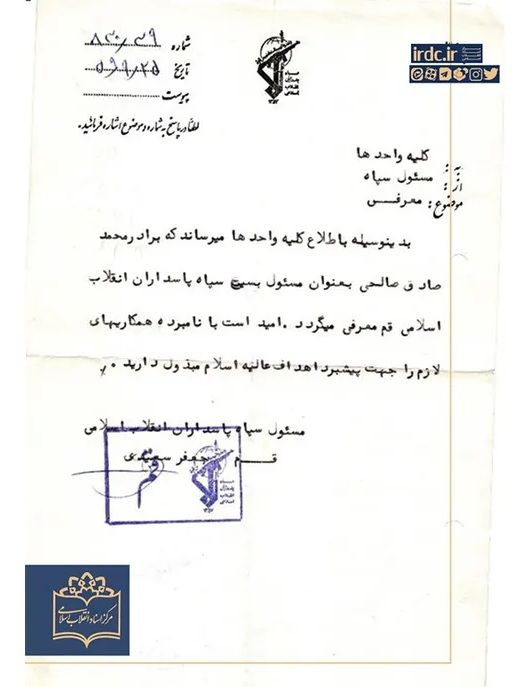 irdc.ir
شماره ۸۳۰/۳۹
تاریخ
پیوست
لطفاً در پاسخ به شماره و موضوع اشاره فرمائید.
سپاه
پاسداران
انقلاب
اسلامی
۱۳۵۷
به: کلیه واحد ها
از: مسئول سپاه
موضوع: معرفی
بدینوسیله باطلاع کلیه واحد ها میرساند که برادر محمد
صادق صالحی بعنوان مسئول بسیج سپاه پاسداران انقلاب
اسلامی قم معرفی میگردد . امید است با نامبرده همکاریهای
لازم را جهت پیشبرد اهداف عالیه اسلام مبذول دارید .
مسئول سپاه پاسداران انقلاب اسلامی
قم جعفر سعیدی
سپاه
پاسداران
انقلاب
اسلامی
۱۳۵۷
قم
مرکز اسناد انقلاب اسلامی